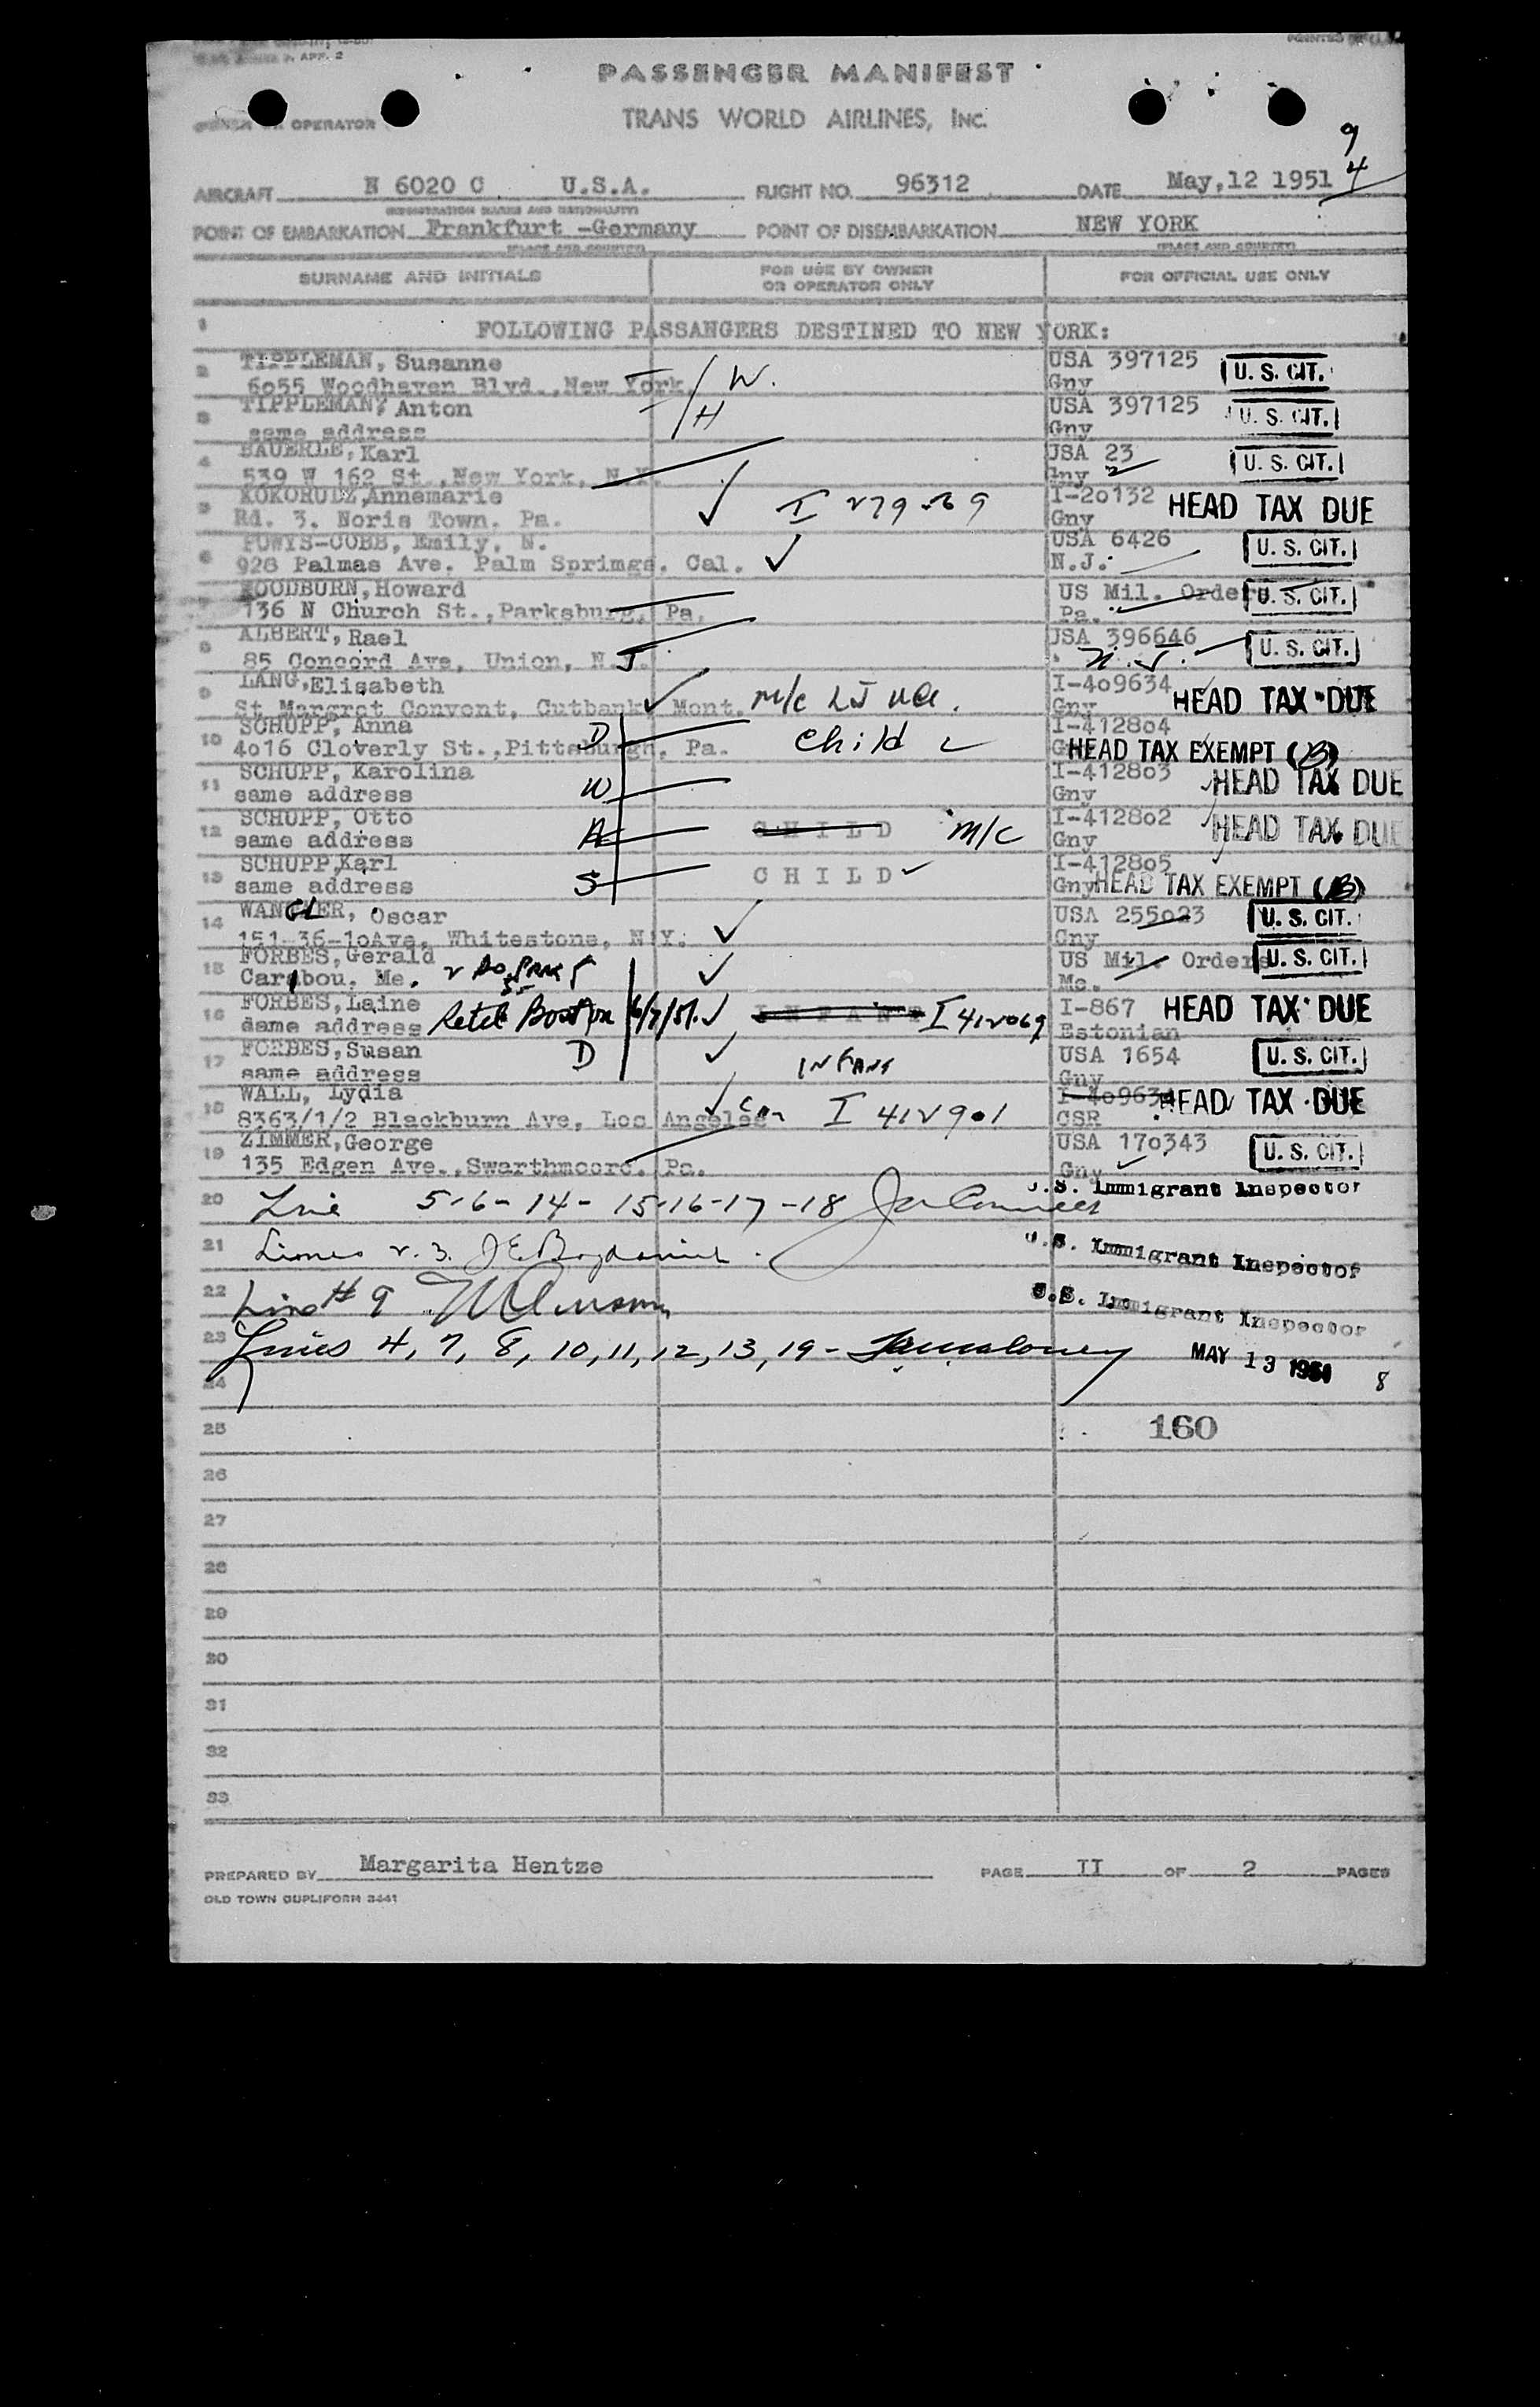 PASSENGER MANIFEST
TRANS WORLD AIRLINES, INC.
OWNER OR OPERATOR
9
4
AIRCRAFT N 6020 C U.S.A. FLIGHT NO. 96312 DATE May,12 1951
(REGISTRATION MARKS AND NATIONALITY)
POINT OF EMBARKATION Frankfurt -Germany POINT OF DISEMBARKATION NEW YORK
(PLACE AND COUNTRY) (PLACE AND COUNTRY)
SURNAME AND INITIALS FOR USE BY OWNER OR OPERATOR ONLY FOR OFFICIAL USE ONLY
1 FOLLOWING PASSANGERS DESTINED TO NEW YORK:
2 TIPPLEMAN, Susanne W. USA 397125 U. S. CIT.
6055 Woodhaven Blvd.,New York Gny
3 TIPPLEMAN, Anton H USA 397125 U. S. CIT.
same address Gny
4 BAUERLE, Karl USA 23 U. S. CIT.
539 W 162 St.,New York, N.Y. Gny
5 KOKORUDZ,Annemarie I-20132 HEAD TAX DUE
Rd. 3. Noris Town. Pa. Gny
6 POWYS-COBB, Emily, N. USA 6426 U. S. CIT.
928 Palmas Ave. Palm Sprimgs. Cal. N.J.
7 WOODBURN,Howard US Mil. Orders U. S. CIT.
136 N Church St.,Parksburg, Pa. Pa.
8 ALBERT, Rael USA 396646 U. S. CIT.
85 Concord Ave, Union, N.J. N.J.
9 LANG,Elisabeth I-409634 HEAD TAX DUE
St Margrot Convent, Cutbank, Mont. m/c Gny
10 SCHUPP, Anna D Child I-412804
4016 Cloverly St.,Pittsburgh, Pa. Gny HEAD TAX EXEMPT (B)
11 SCHUPP, Karolina W I-412803 HEAD TAX DUE
same address Gny
12 SCHUPP, Otto CHILD M/C I-412802 HEAD TAX DUE
same address Gny
13 SCHUPP,Karl S CHILD I-412805
same address Gny HEAD TAX EXEMPT (B)
14 WANGLER, Oscar USA 255023 U. S. CIT.
151-36-10Ave, Whitestone, N.Y. Gny
15 FORBES,Gerald US Mil. Orders U. S. CIT.
Caribou, Me. Me.
16 FORBES,Laine INFANT I 412069 I-867 HEAD TAX DUE
same address Boston 6/7/51 Estonian
17 FORBES,Susan D INFANT USA 1654 U. S. CIT.
same address Gny
18 WALL, Lydia I-409634 HEAD TAX DUE
8363/1/2 Blackburn Ave, Los Angeles I 412901 CSR
19 ZIMMER,George USA 170343 U. S. CIT.
135 Edgen Ave.,Swarthmoore. Pa. Gny
20 Line 5-6-14-15-16-17-18 U.S. Immigrant Inspector
21 Lines 2. 3. U.S. Immigrant Inspector
22 Line # 9 U.S. Immigrant Inspector
23 Lines 4, 7, 8, 10, 11, 12, 13, 19 - MAY 13 1951
24 8
25 160
26
27
28
29
30
31
32
33
PREPARED BY Margarita Hentze PAGE II OF 2 PAGES
OLD TOWN DUPLIFORM 3441